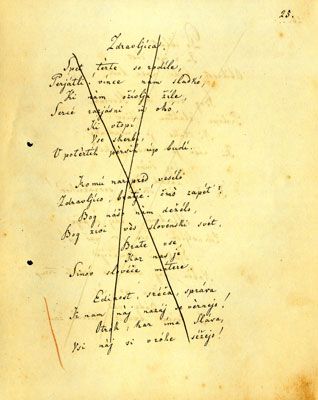 25.
Zdravljica.
Spet tèrte so rodile,
Perjátli, vince nam sladkó,
Ki nam oživlja žile,
Sercé razjásni in okó,
Ki vtopi
Vse skerbi,
V potèrtih pèrsih úp budi.
Komú narpred veselo
Zdravljico, bratje! čmò zapét?
Bog našo nam deželo,
Bog živi ves slovénski svét,
Bráte vse,
Kar nas je
Sinóv slovéče mátere.
Edinost, sréča, správa
K nam naj nazáj se vèrnejo!
Otrók, kar ima Sláva,
Vsi naj si v róke séžejo!